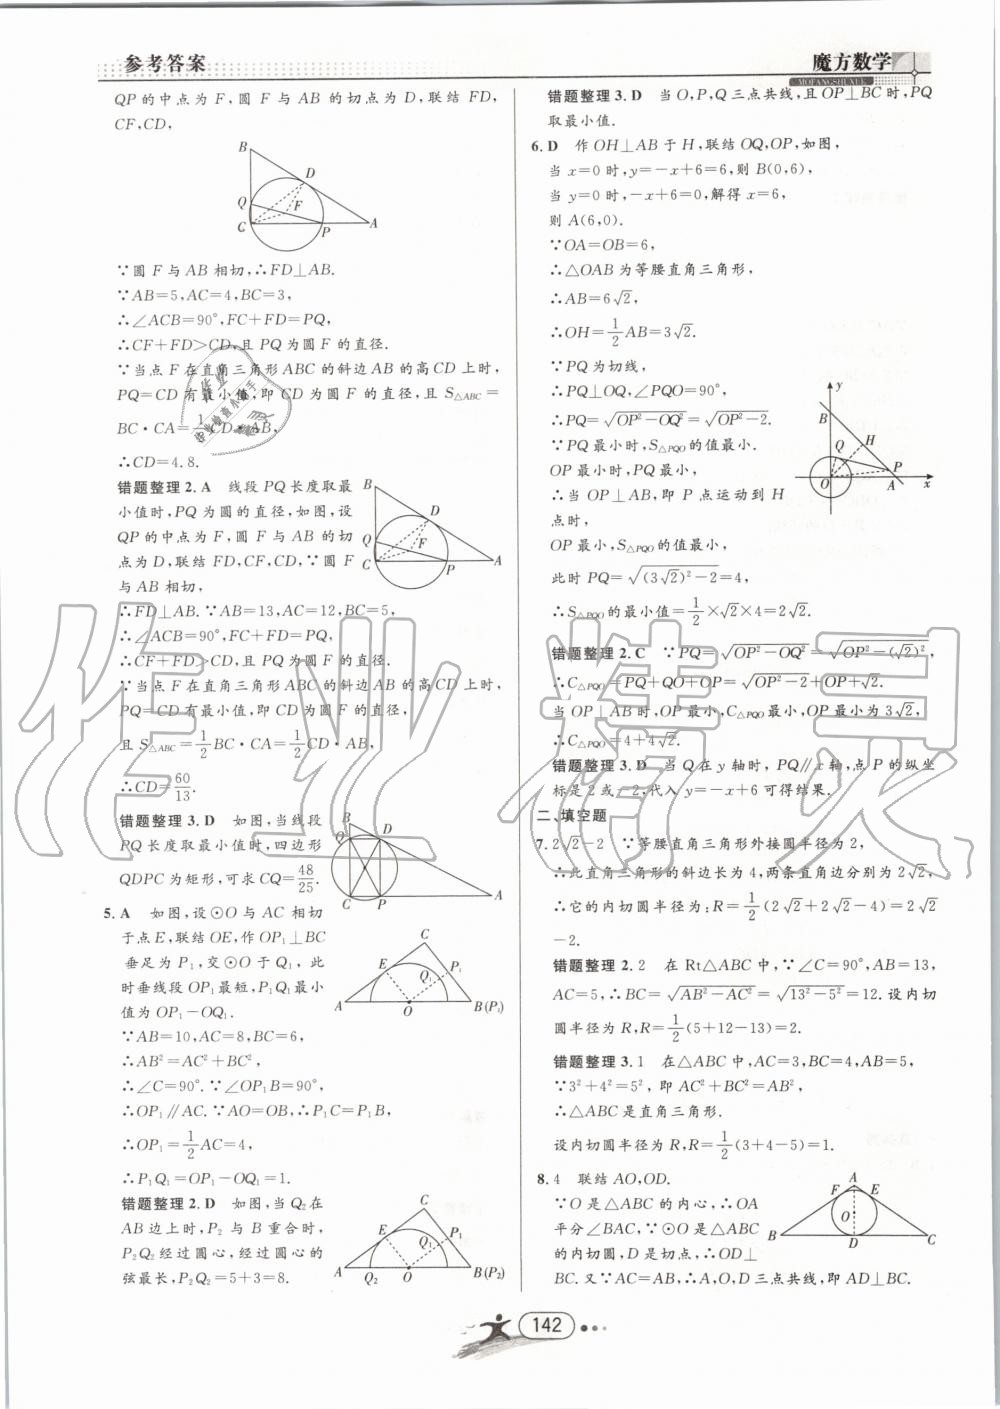 参考答案
魔方数学
MOFANGSHUXUE
QP的中点为F,圆F与AB的切点为D,联结FD,
CF,CD,
B
D
Q
F
C
P
A
∵圆F与AB相切,∴FD⊥AB.
∵AB=5,AC=4,BC=3,
∴∠ACB=90°,FC+FD=PQ,
∴CF+FD>CD,且PQ为圆F的直径.
∵当点F在直角三角形ABC的斜边AB的高CD上时,
PQ=CD有最小值,即CD为圆F的直径,且S△ABC=
BC·CA=1/2 CD·AB,
∴CD=4.8.
错题整理2.A 线段PQ长度取最
小值时,PQ为圆的直径,如图,设
QP的中点为F,圆F与AB的切
点为D,联结FD,CF,CD,∵圆F
与AB相切,
B
D
Q
F
C
P
A
∴FD⊥AB.∵AB=13,AC=12,BC=5,
∴∠ACB=90°,FC+FD=PQ,
∴CF+FD>CD,且PQ为圆F的直径.
∵当点F在直角三角形ABC的斜边AB的高CD上时,
PQ=CD有最小值,即CD为圆F的直径,
且S△ABC=1/2 BC·CA=1/2 CD·AB,
∴CD=60/13.
错题整理3.D 如图,当线段
PQ长度取最小值时,四边形
QDPC为矩形,可求CQ=48/25.
B
Q
D
C
P
A
5.A 如图,设⊙O与AC相切
于点E,联结OE,作OP₁⊥BC
垂足为P₁,交⊙O于Q₁,此
时垂线段OP₁最短,P₁Q₁最小
值为OP₁-OQ₁.
C
E
Q₁
P₁
A
O
B(P₂)
∵AB=10,AC=8,BC=6,
∴AB²=AC²+BC²,
∴∠C=90°.∵∠OP₁B=90°,
∴OP₁∥AC.∵AO=OB,∴P₁C=P₁B,
∴OP₁=1/2 AC=4,
∴P₁Q₁=OP₁-OQ₁=1.
错题整理2.D 如图,当Q₂在
AB边上时,P₂与B重合时,
P₂Q₂经过圆心,经过圆心的
弦最长,P₂Q₂=5+3=8.
C
E
Q₁
P₁
A
Q₂
O
B(P₂)
错题整理3.D 当O,P,Q三点共线,且OP⊥BC时,PQ
取最小值.
6.D 作OH⊥AB于H,联结OQ,OP,如图,
当x=0时,y=-x+6=6,则B(0,6),
当y=0时,-x+6=0,解得x=6,
则A(6,0).
∵OA=OB=6,
∴△OAB为等腰直角三角形,
∴AB=6√2,
∴OH=1/2 AB=3√2.
∵PQ为切线,
∴PQ⊥OQ,∠PQO=90°,
∴PQ=√(OP²-OQ²)=√(OP²-2).
∵PQ最小时,S△PQO的值最小.
OP最小时,PQ最小,
∴当OP⊥AB,即P点运动到H
点时,
y
B
Q
H
P
O
A
x
OP最小,S△PQO的值最小,
此时PQ=√((3√2)²-2)=4,
∴S△PQO的最小值=1/2×√2×4=2√2.
错题整理2.C ∵PQ=√(OP²-OQ²)=√(OP²-(√2)²,
∴C△PQO=PQ+QO+OP=√(OP²-2)+OP+√2.
当OP⊥AB时,OP最小,C△PQO最小,OP最小为3√2,
∴C△PQO=4+4√2.
错题整理3.D 当Q在y轴时,PQ∥x轴,点P的纵坐
标是2或-2,代入y=-x+6可得结果.
二、填空题
7.2√2-2 ∵等腰直角三角形外接圆半径为2,
∴此直角三角形的斜边长为4,两条直角边分别为2√2,
∴它的内切圆半径为:R=1/2(2√2+2√2-4)=2√2
-2.
错题整理2.2 在Rt△ABC中,∵∠C=90°,AB=13,
AC=5,∴BC=√(AB²-AC²)=√(13²-5²)=12.设内切
圆半径为R,R=1/2(5+12-13)=2.
错题整理3.1 在△ABC中,AC=3,BC=4,AB=5,
∵3²+4²=5²,即AC²+BC²=AB²,
∴△ABC是直角三角形.
设内切圆半径为R,R=1/2(3+4-5)=1.
8.4 联结AO,OD.
∵O是△ABC的内心,∴OA
平分∠BAC,∵⊙O是△ABC
的内切圆,D是切点,∴OD⊥
BC.又∵AC=AB,∴A,O,D三点共线,即AD⊥BC.
A
F
E
O
B
D
C
142
作业精灵